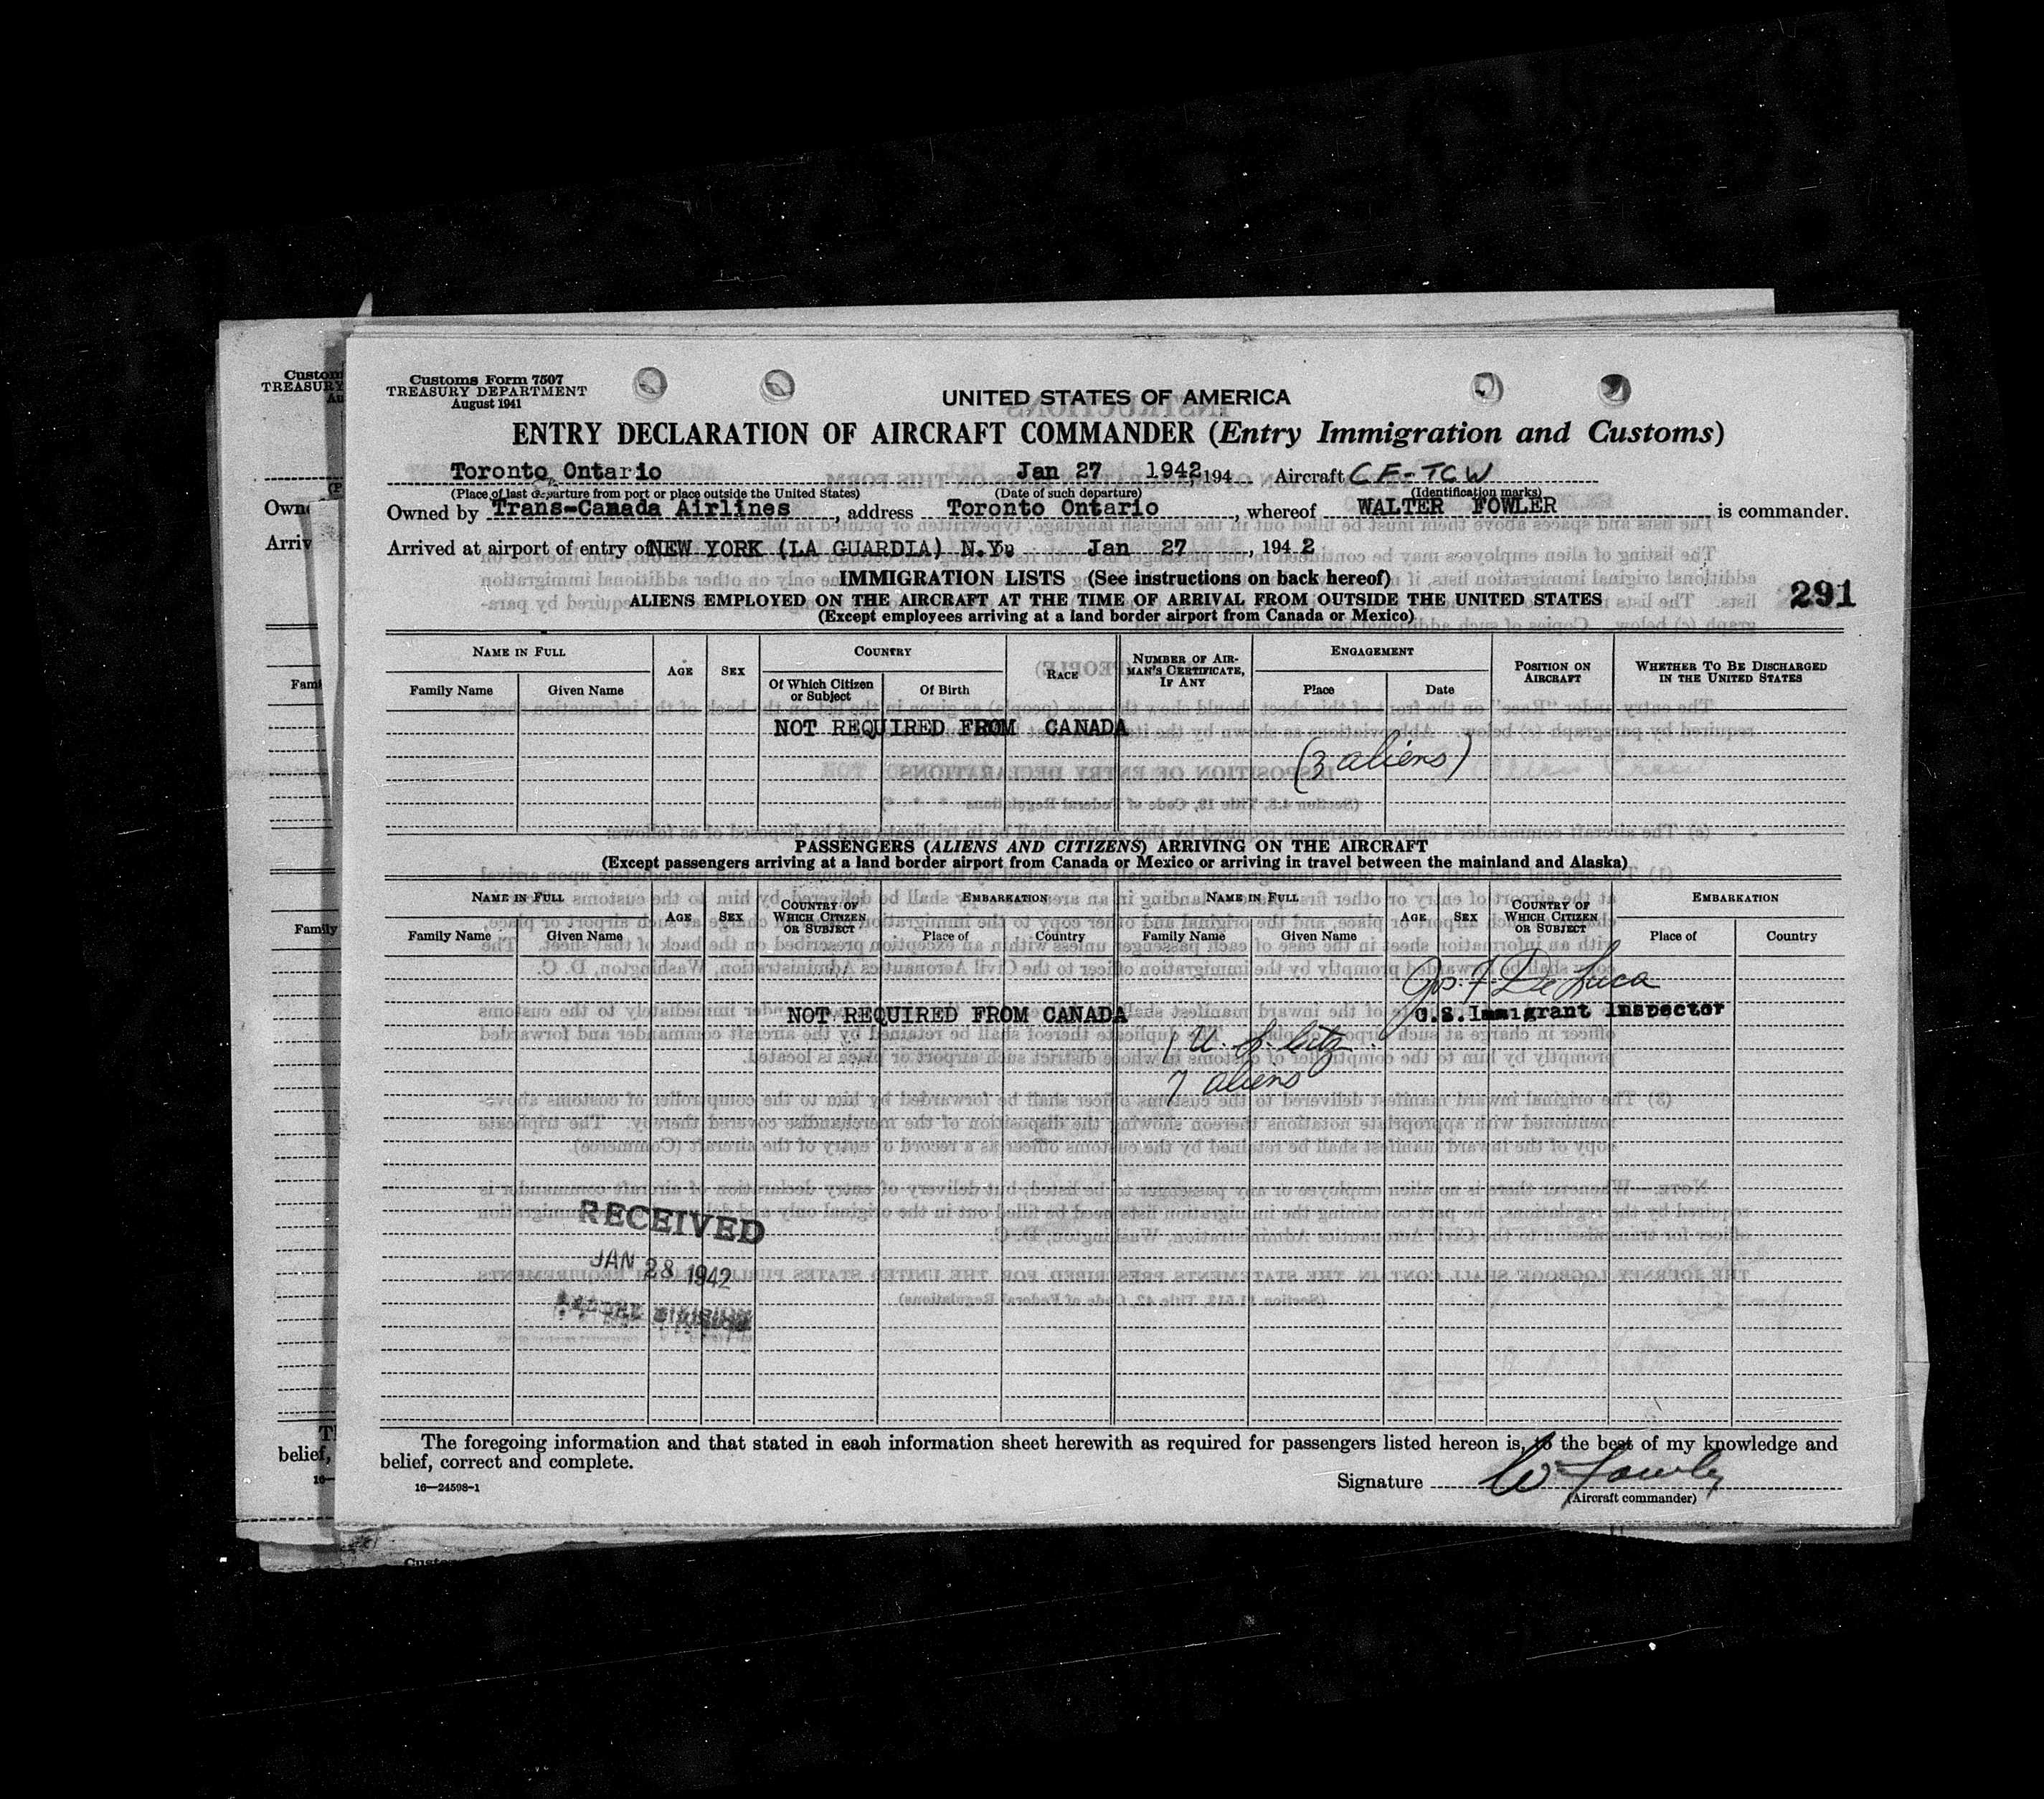 Customs Form 7507
TREASURY DEPARTMENT
August 1941
UNITED STATES OF AMERICA
ENTRY DECLARATION OF AIRCRAFT COMMANDER (Entry Immigration and Customs)
Toronto Ontario Jan 27 1942, 194 Aircraft CF-TCW
(Place of last departure from port or place outside the United States) (Date of such departure) (Identification marks)
Owned by Trans-Canada Airlines, address Toronto Ontario, whereof WALTER FOWLER is commander.
Arrived at airport of entry of NEW YORK (LA GUARDIA) N.Y. Jan 27, 1942
IMMIGRATION LISTS (See instructions on back hereof)
291
ALIENS EMPLOYED ON THE AIRCRAFT AT THE TIME OF ARRIVAL FROM OUTSIDE THE UNITED STATES
(Except employees arriving at a land border airport from Canada or Mexico)
NAME IN FULL AGE SEX COUNTRY RACE NUMBER OF AIRMAN'S CERTIFICATE, IF ANY ENGAGEMENT POSITION ON AIRCRAFT WHETHER TO BE DISCHARGED IN THE UNITED STATES
Family Name Given Name Of Which Citizen or Subject Of Birth Place Date
NOT REQUIRED FROM CANADA
(3 aliens)
PASSENGERS (ALIENS AND CITIZENS) ARRIVING ON THE AIRCRAFT
(Except passengers arriving at a land border airport from Canada or Mexico or arriving in travel between the mainland and Alaska)
NAME IN FULL AGE SEX COUNTRY OF WHICH CITIZEN OR SUBJECT EMBARKATION NAME IN FULL AGE SEX COUNTRY OF WHICH CITIZEN OR SUBJECT EMBARKATION
Family Name Given Name Place of Country Family Name Given Name Place of Country
Jos. F. De Luca
NOT REQUIRED FROM CANADA U.S. Immigrant Inspector
1 U. S. Citz
7 aliens
RECEIVED
JAN 28 1942
The foregoing information and that stated in each information sheet herewith as required for passengers listed hereon is, to the best of my knowledge and
belief, correct and complete.
Signature W Fowler
(Aircraft commander)
16—24598-1